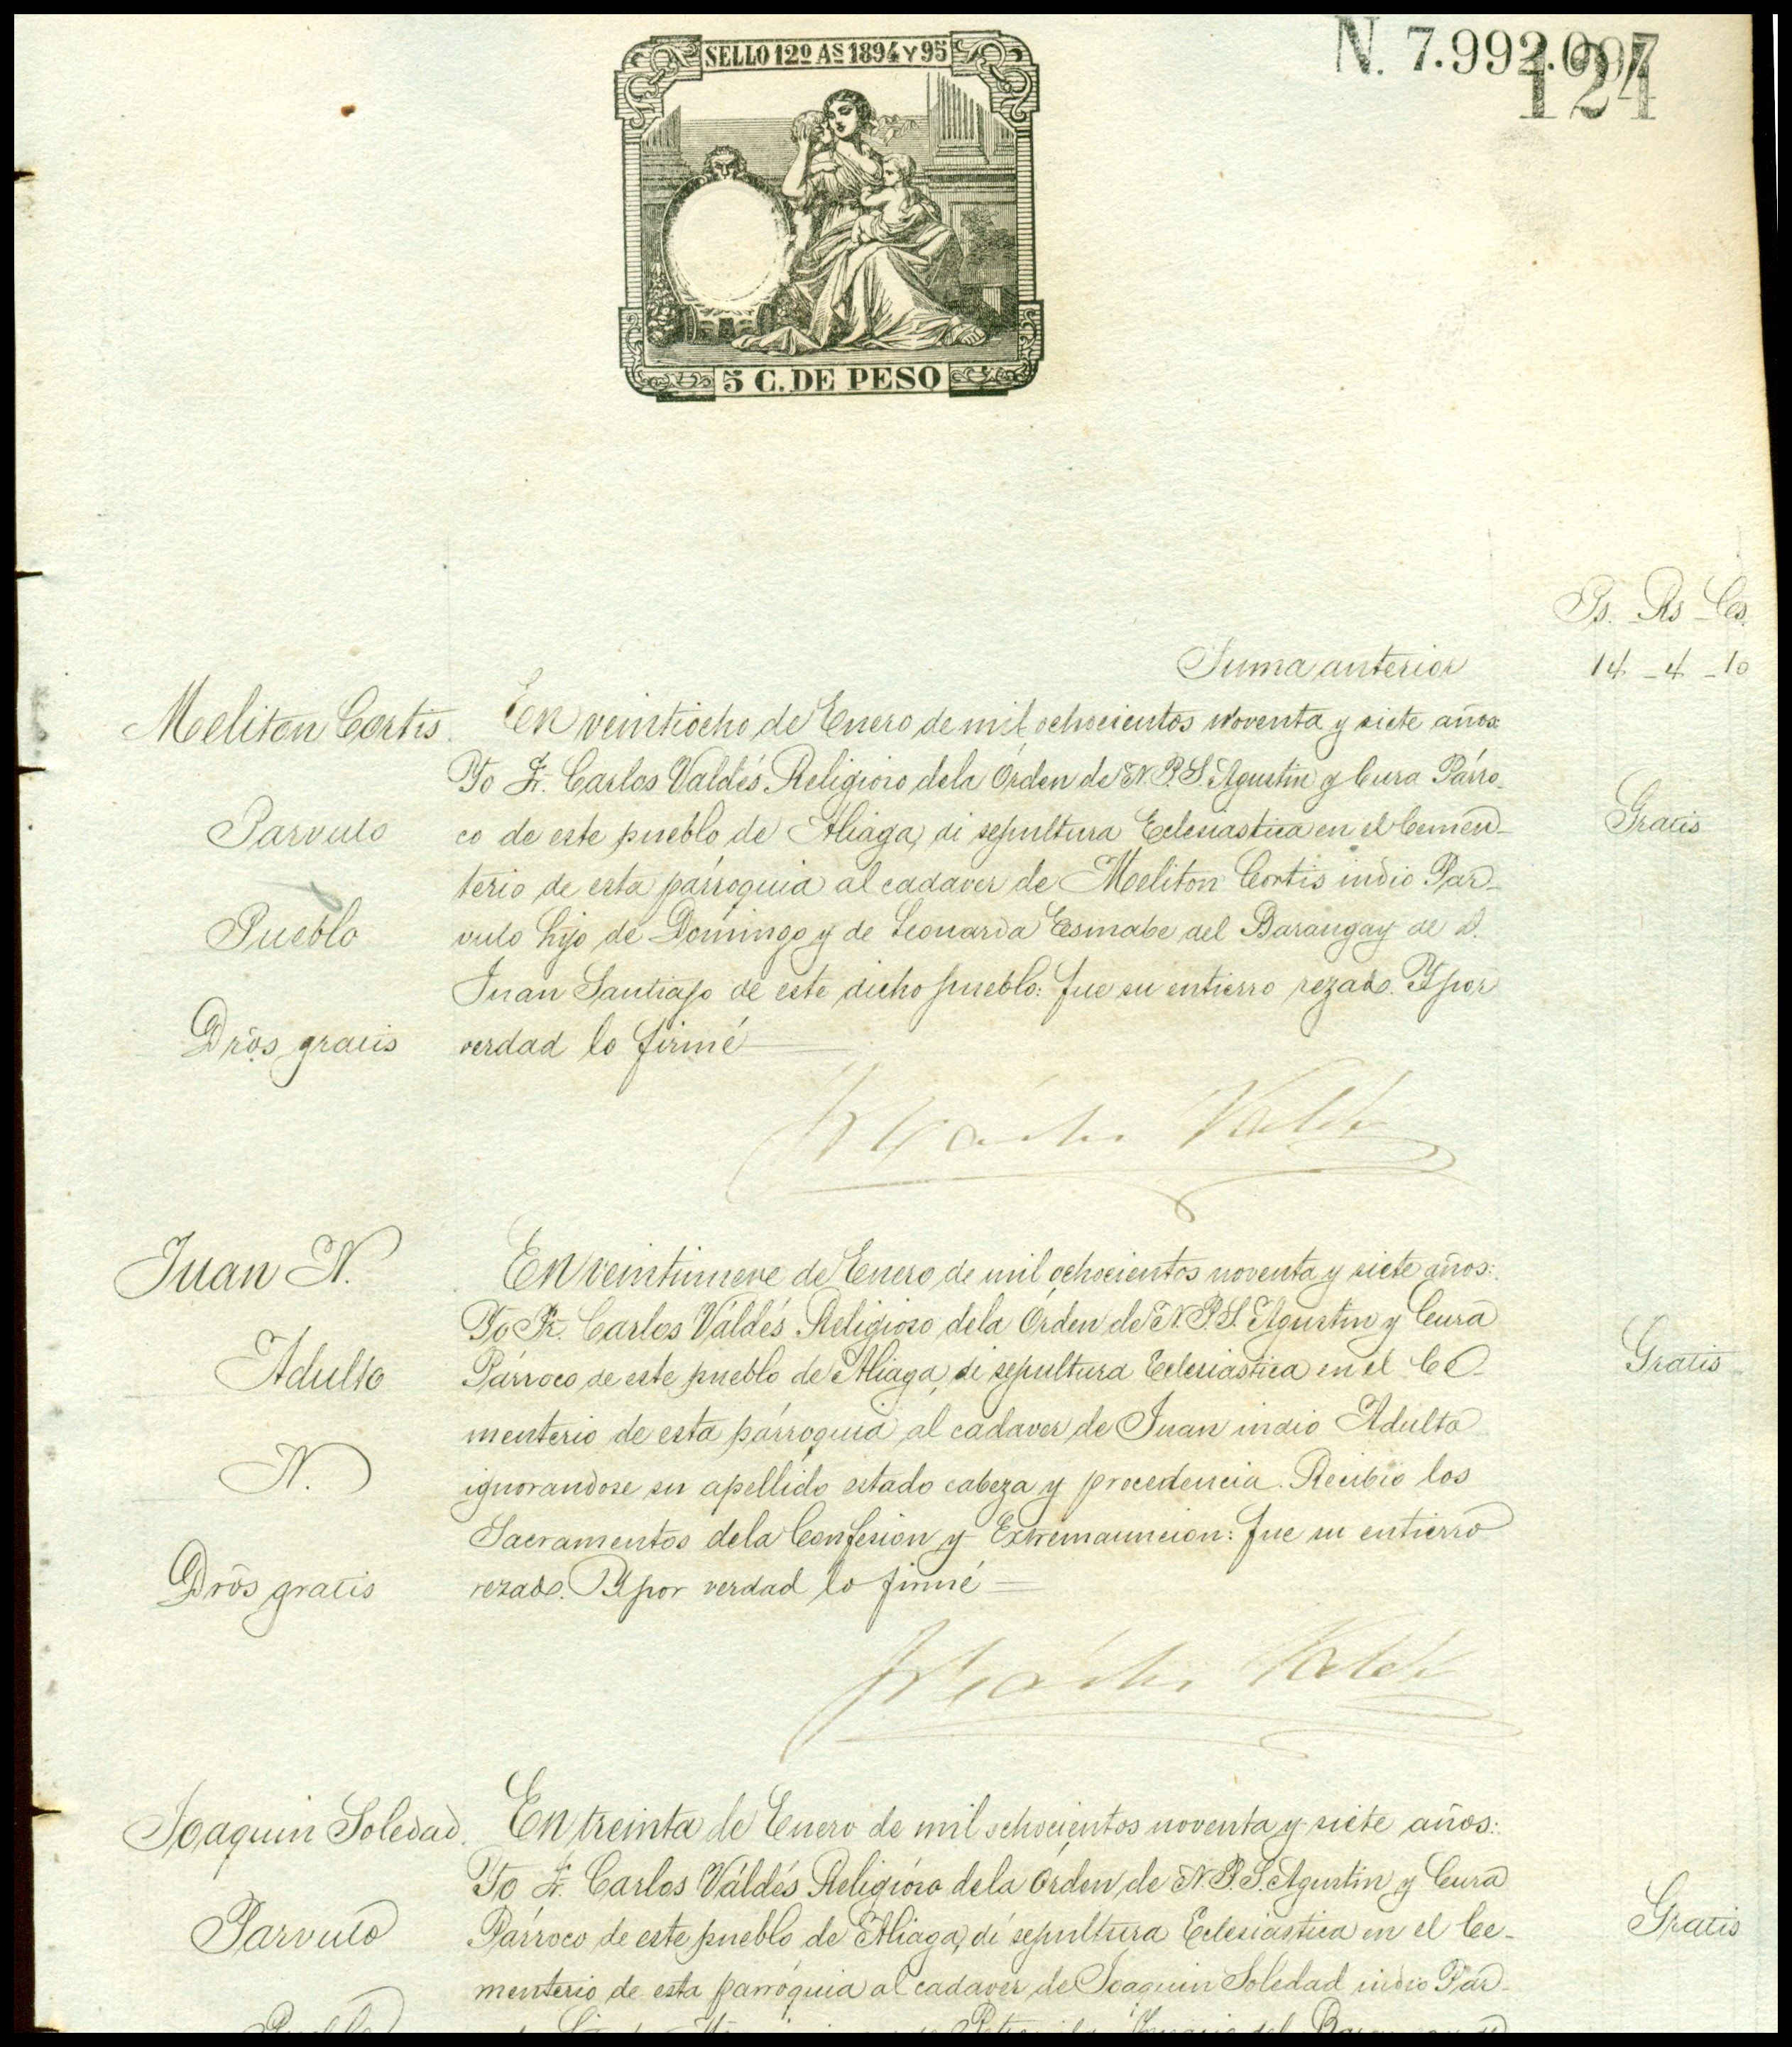 SELLO 12º AS 1894 Y 95
N. 7.992.097
124
5 C. DE PESO
Ps. Rs Cs.
Suma anterior 14 - 4 - 10
Meliton Cortis. En veintiocho de Enero de mil ochocientos noventa y siete años:
Yo Fr. Carlos Valdés Religioso dela Órden de N. P. S. Agustin y Cura Párro-
Parvulo co de este pueblo de Aliaga, di sepultura Eclesiastica en el Cemen- Gratis
terio de esta párroquia al cadaver de Meliton Cortis indio Par-
Pueblo vulo hijo de Domingo y de Leonarda Esmabe del Barangay de D.
Juan Santiago de este dicho pueblo: fue su entierro rezado. Y por
Drõs gratis verdad lo firmé
Fr. Carlos Valdés
Juan N. En veintinueve de Enero de mil ochocientos noventa y siete años:
Yo Fr. Carlos Váldés Religioso dela Órden de N. P. S. Agustin y Cura
Adulto Párroco de este pueblo de Aliaga, di sepultura Eclesiastica en el Ce- Gratis
menterio de esta párroquia al cadaver de Juan indio Adulto
N. ignorandose su apellido estado cabeza y procedencia. Recibio los
Sacramentos dela Confesion y Extremauncion: fue su entierro
Drõs gratis rezado. Y por verdad lo firmé
Fr. Carlos Valdés
Joaquin Soledad. En treinta de Enero de mil ochocientos noventa y siete años:
Yo Fr. Carlos Váldés Religioso dela Órden de N. P. S. Agustin y Cura
Parvulo Párroco de este pueblo de Aliaga, di sepultura Eclesiastica en el Ce- Gratis
menterio de esta parróquia al cadaver de Joaquin Soledad indio Par-
Pueblo